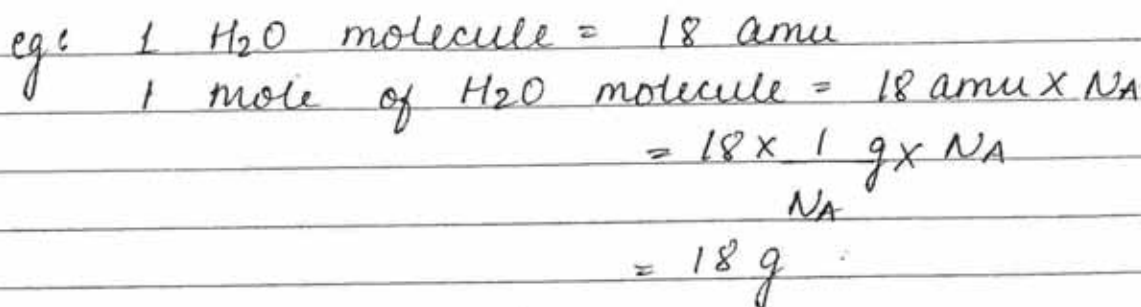 eg: 1 H2O molecule = 18 amu
1 mole of H2O molecule = 18 amu x NA
= 18 x 1 g x NA
NA
= 18 g